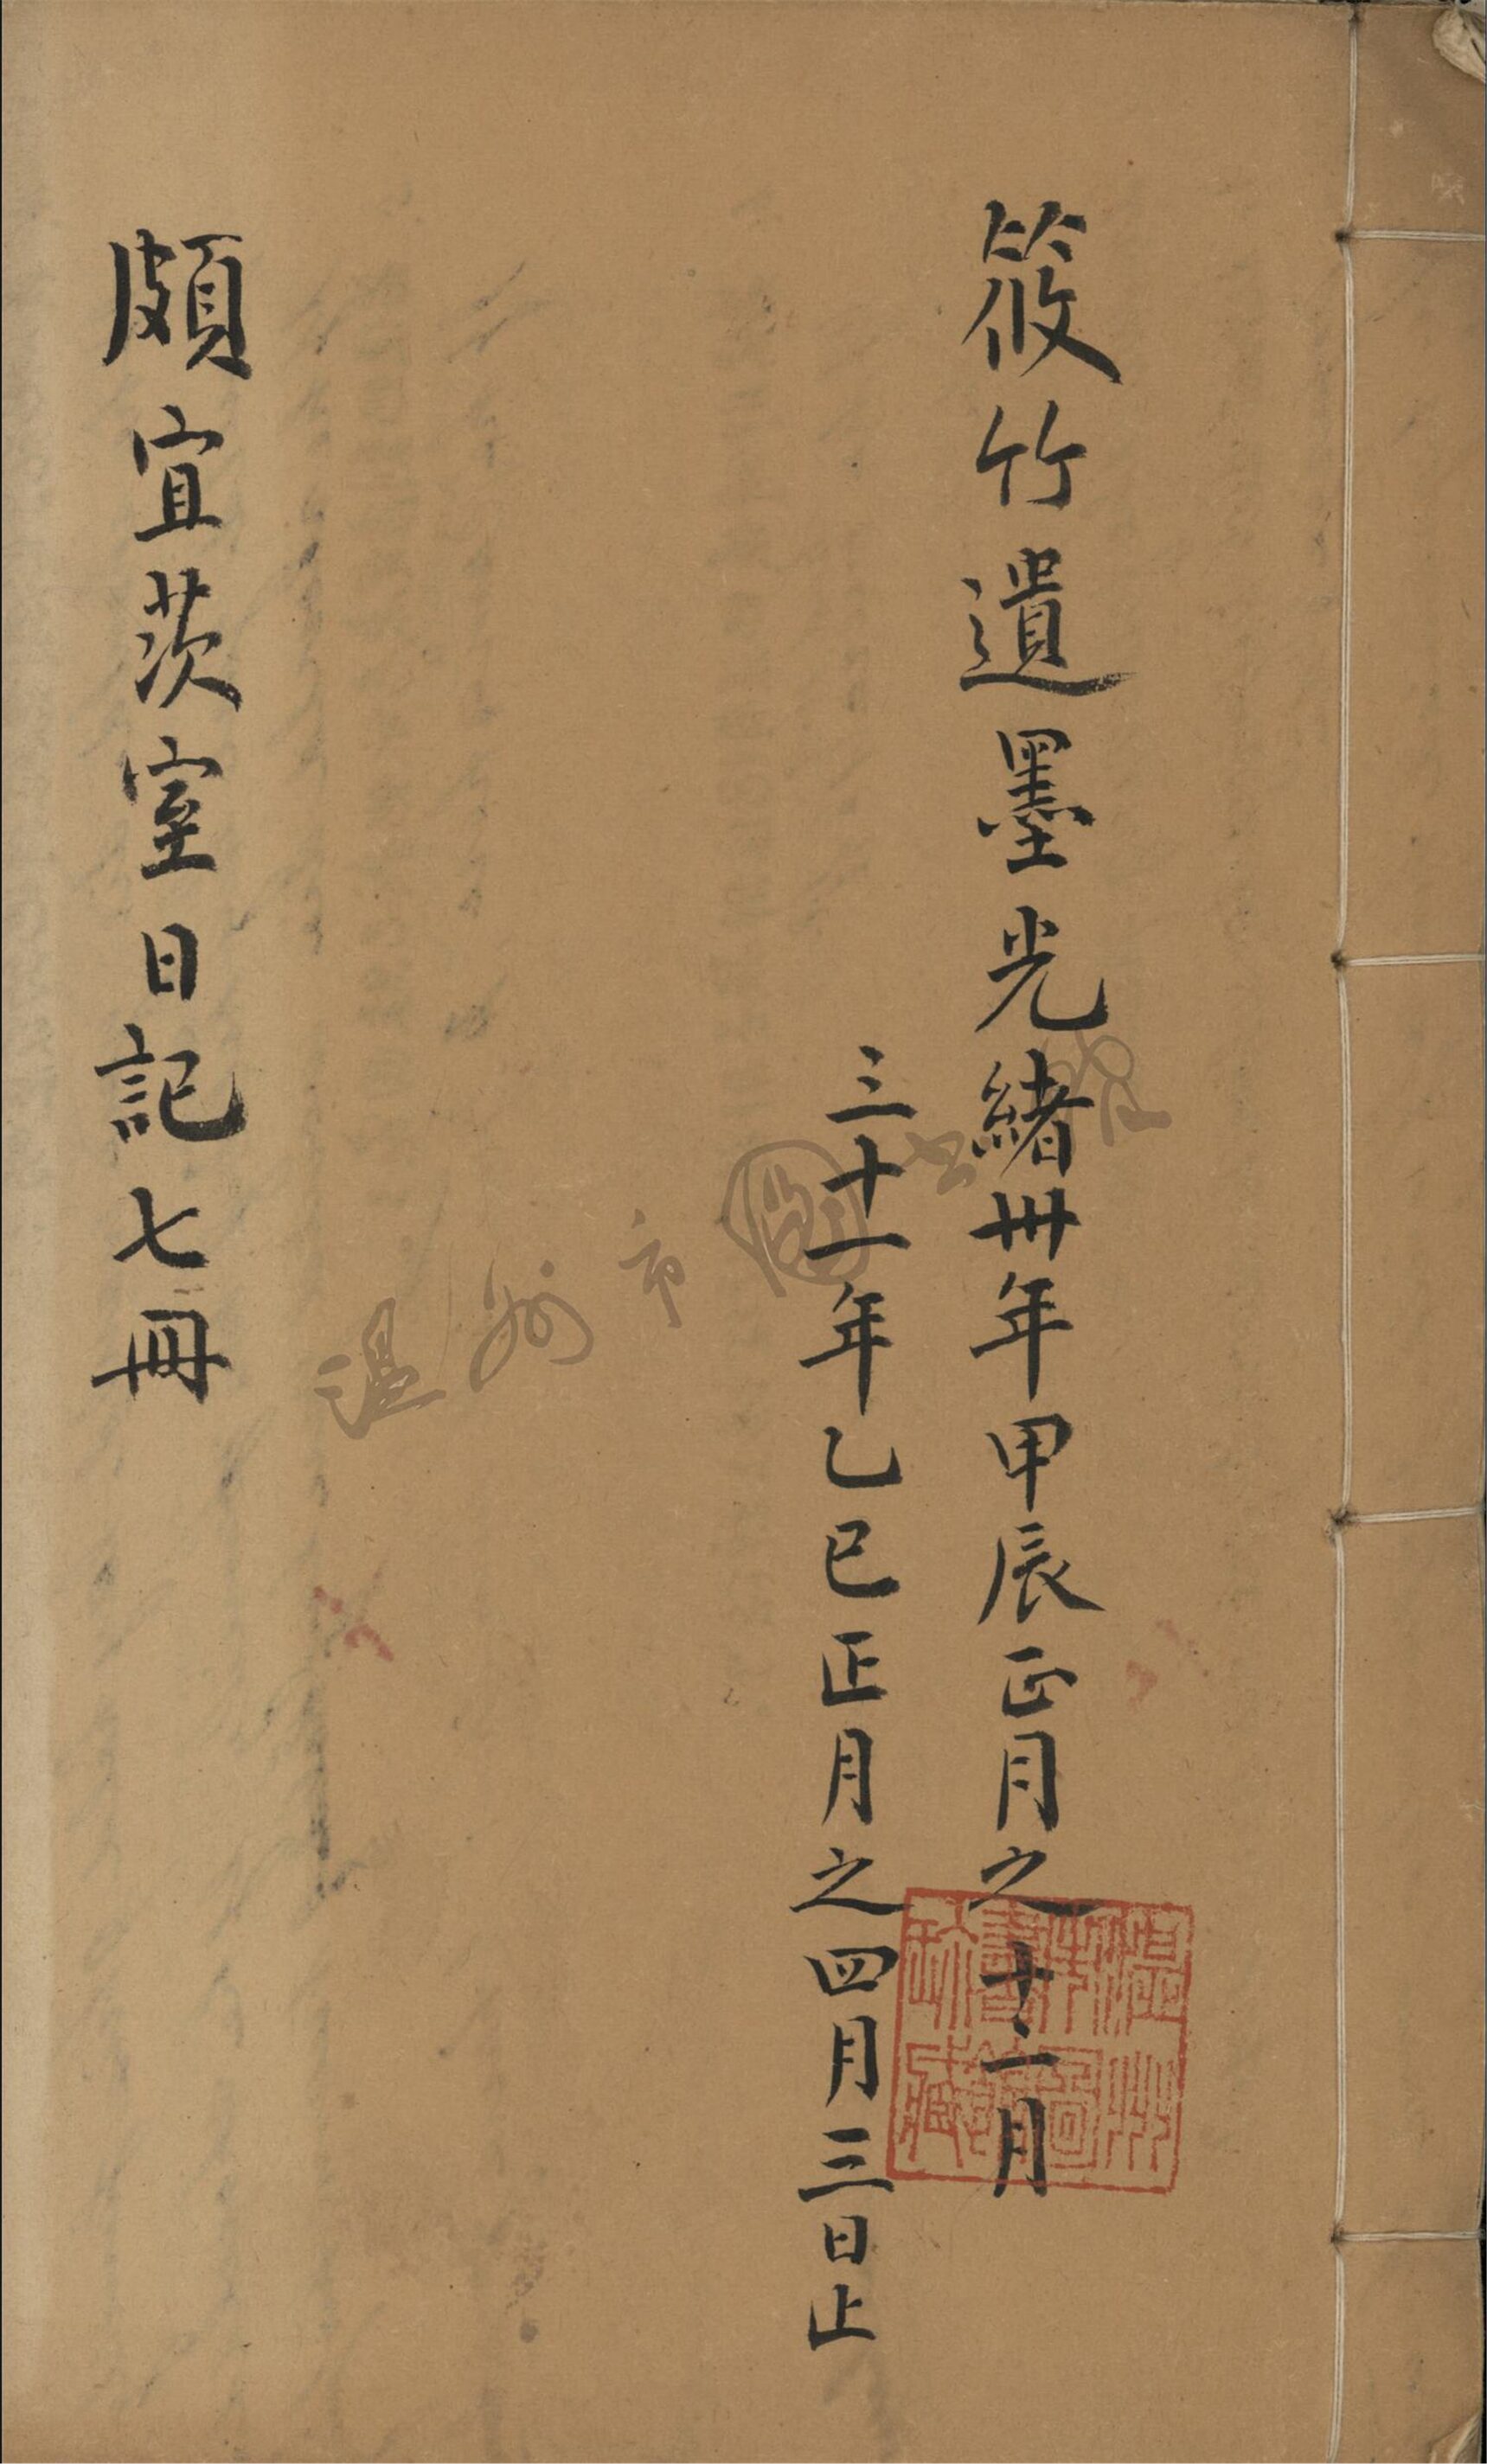 筱竹遺墨光緒卅年甲辰正月之十二月
三十一年乙巳正月之四月三日止
頗宜茨室日記七冊
溫州市圖書館
溫州
市圖
書館
珍藏